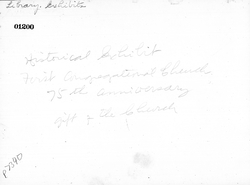 Library, Exhibits
01200
Historical Exhibit
First Congregational Church
75th anniversary
Gift of the Church
P7390